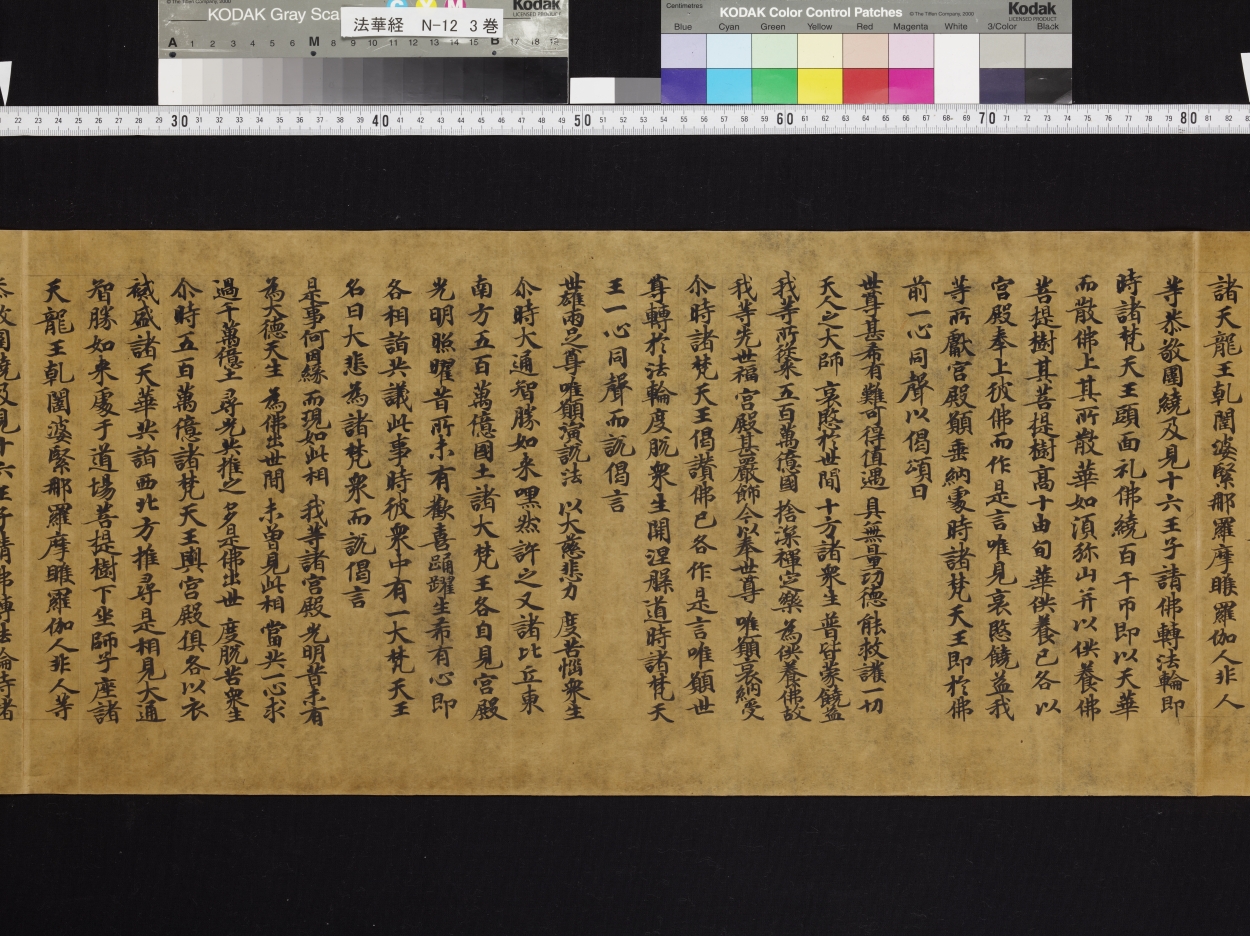 KODAK Gray Scale
法華経 N-12 3巻
Kodak
LICENSED PRODUCT
A 1 2 3 4 5 6 M 8 9 10 11 12 13 14 15 B 17 18 19
Centimetres
KODAK Color Control Patches
© The Tiffen Company, 2000
Kodak
LICENSED PRODUCT
Blue Cyan Green Yellow Red Magenta White 3/Color Black
22 23 24 25 26 27 28 29 30 31 32 33 34 35 36 37 38 39 40 41 42 43 44 45 46 47 48 49 50 51 52 53 54 55 56 57 58 59 60 61 62 63 64 65 66 67 68 69 70 71 72 73 74 75 76 77 78 79 80 81 82
諸天龍王乹闥婆緊那羅摩睺羅伽人非人
等恭敬圍繞及見十六王子請佛轉法輪即
時諸梵天王頭面礼佛繞百千帀即以天華
而散佛上其所散華如湏弥山并以供養佛
菩提樹其菩提樹髙十由旬華供養已各以
宮殿奉上彼佛而作是言唯見哀愍饒益我
等所獻宮殿願垂納處時諸梵天王即於佛
前一心同聲以偈頌曰
世尊甚希有難可得值遇 具無量功德能救護一切
天人之大師 哀愍於世間 十方諸衆生 普皆蒙饒益
我等所從來 五百萬億國 捨深禪定樂 為供養佛故
我等先世福 宮殿甚嚴飾 今以奉世尊 唯願哀納受
尒時諸梵天王偈讃佛已各作是言唯願世
尊轉於法輪度脱衆生開涅槃道時諸梵天
王一心同聲而說偈言
世雄兩足尊 唯願演說法 以大慈悲力 度苦惱衆生
尒時大通智勝如来嘿然許之又諸比丘東
南方五百萬億國土諸大梵王各自見宮殿
光明照曜昔所未有歡喜踊躍生希有心即
各相詣共議此事時彼衆中有一大梵天王
名曰大悲為諸梵衆而說偈言
是事何因緣而現如此相 我等諸宮殿 光明昔未有
為大德天生 為佛出世間 未曽見此相 當共一心求
過千萬億土 尋光共推之 多是佛出世 度脱苦衆生
尒時五百萬億諸梵天王與宮殿俱各以衣
祴盛諸天華共詣西北方推尋是相見大通
智勝如来處于道場菩提樹下坐師子座諸
天龍王乹闥婆緊那羅摩睺羅伽人非人等
恭敬圍繞及見十六王子請佛轉法輪時諸